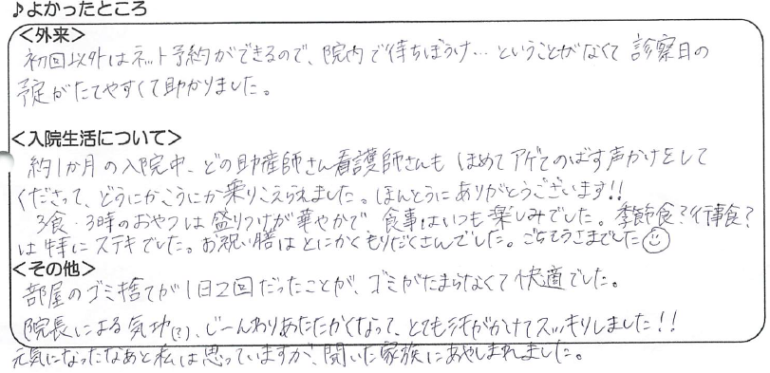 ♪よかったところ
＜外来＞
初回以外はネット予約ができるので、院内で待ちぼうけ…ということがなくて診察日の
予定がたてやすくて助かりました。
＜入院生活について＞
約1か月の入院中、どの助産師さん看護師さんもほめてアゲてのばす声かけをして
くださって、どうにかこうにか乗りこえられました。ほんとうにありがとうございます!!
3食・3時のおやつは盛りつけが華やかで食事はいつも楽しみでした。季節食?行事食?
は特にステキでした。お祝い膳はとにかくもりだくさんでした。ごちそうさまでした☺
＜その他＞
部屋のゴミ捨てが1日2回だったことが、ゴミがたまらなくて快適でした。
院長による気功(?)、じーんわりあたたかくなって、とても汗がかけてスッキリしました!!
元気になったなあと私は思っていますが、聞いた家族にあやしまれました。